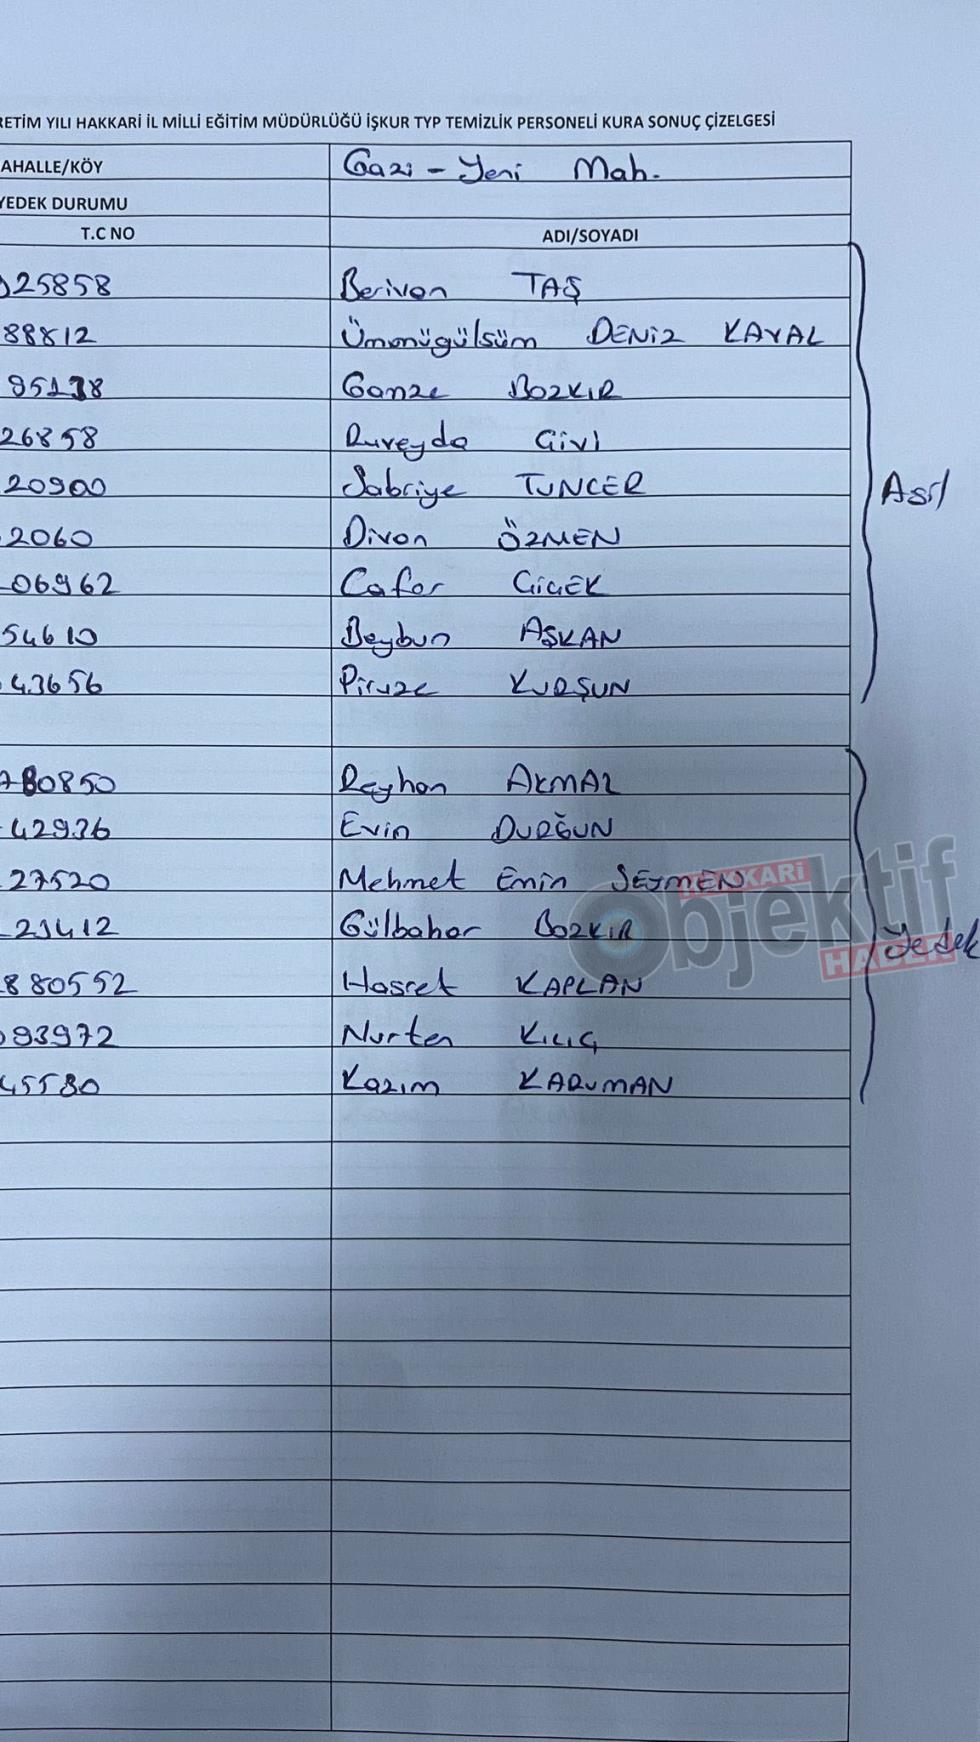 RETİM YILI HAKKARİ İL MİLLİ EĞİTİM MÜDÜRLÜĞÜ İŞKUR TYP TEMİZLİK PERSONELİ KURA SONUÇ ÇİZELGESİ
AHALLE/KÖY Gazi - Yeni Mah.
YEDEK DURUMU
T.C NO ADI/SOYADI
25858 Berivan TAŞ
88812 Ümmügülsüm DENİZ KAYAL
95138 Gamze BOZKIR
26858 Ruveyda CİVİ
20900 Sabriye TUNCER
2060 Divan ÖZMEN
06962 Cafer ÇİÇEK
54610 Beybun AŞKAN
43656 Piruze KURŞUN
Asil
780850 Reyhan AKMAZ
42936 Evin DURĞUN
27520 Mehmet Emin SEYMEN
23412 Gülbahar BOZKIR
880552 Hasret KAPLAN
93972 Nurten KILIÇ
45580 Kazım KARUMAN
Yedek
HAKKARİ
Objektif
HABER